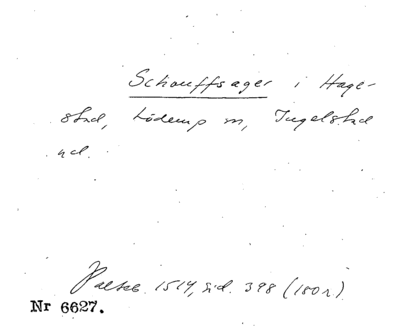 Schouffsager i Hage-
stad, Löderup sn, Ingelstad
hd.
Palteb. 1514, sid. 398 (180r)
Nr 6627.